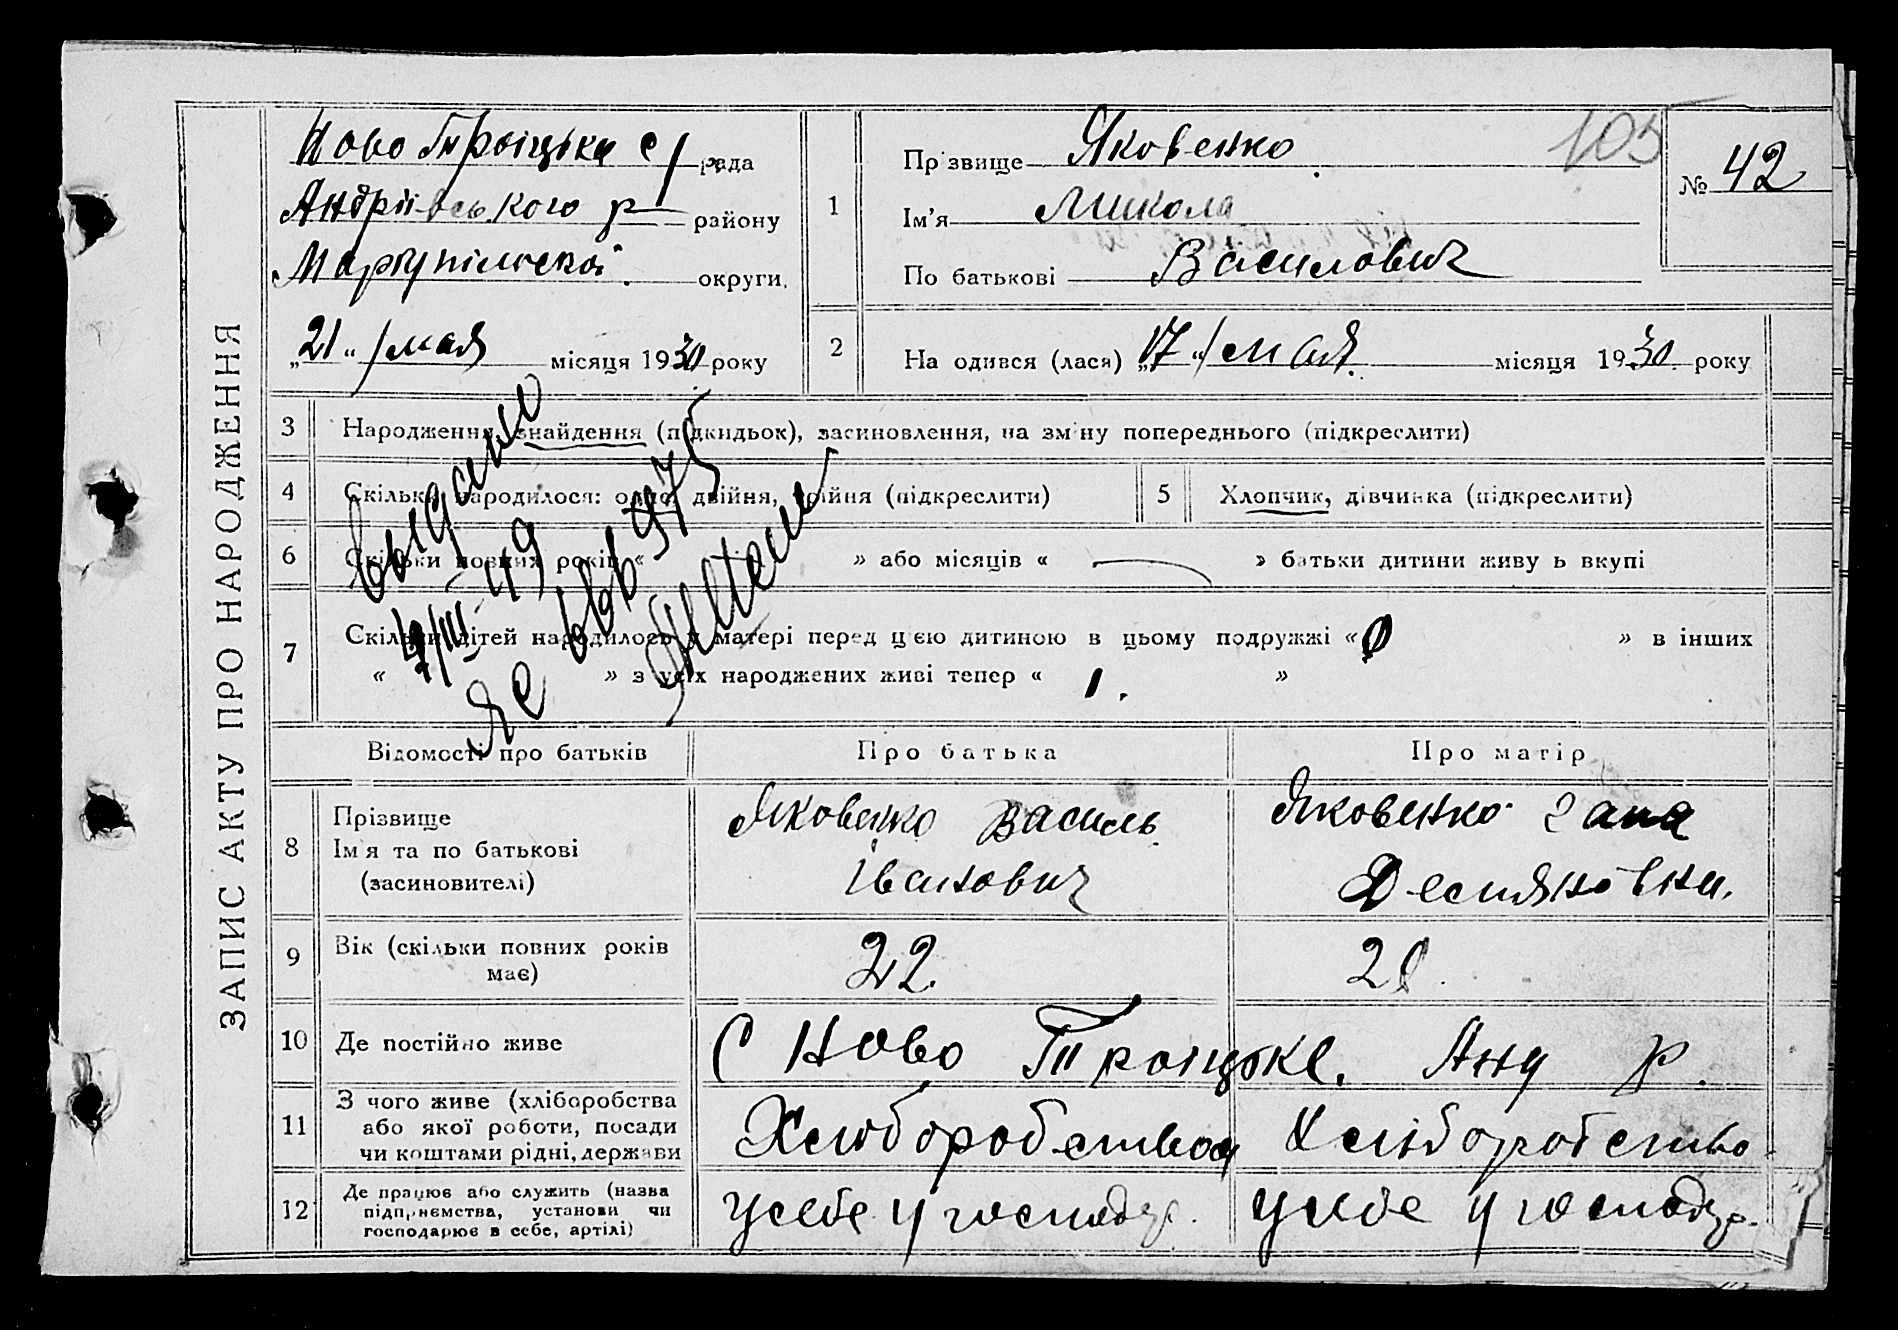 ЗАПИС АКТУ ПРО НАРОДЖЕННЯ
Ново Троіцька с/рада
Андріївського р району
Маріупільскоі округи.
„21“ мая місяця 1930 року
1
Прізвище Яковенко
Ім'я Микола
По батькові Василович
105
№ 42
2
На одився (лася) „17“ мая місяця 1930 року
3 Народження, знайдення (підкидьок), засиновлення, на зміну попереднього (підкреслити)
4 Скільки народилося: одно, двійня, трійня (підкреслити)
5 Хлопчик, дівчинка (підкреслити)
6 Скільки повних років « » або місяців « » батьки дитини живуть вкупі
7 Скільки дітей народилось у матері перед цією дитиною в цьому подружжі «0 » в інших
« » з усіх народжених живі тепер « 1. »
выдано
4/III-49
яс 666975
Відомості про батьків
Про батька
Про матір
8 Прізвище
Ім'я та по батькові
(засиновителі)
Яковенко Василь
Іванович
Яковенко Гана
9 Вік (скільки повних років
має)
22.
10 Де постійно живе
С Ново Троіцьке. Анд р.
11 З чого живе (хліборобства
або якої роботи, посади
чи коштами рідні, держави
Хліборобство
12 Де працює або служить (назва
підприємства, установи чи
господарює в себе, артілі)
у себе у господар.
у себе у господар.